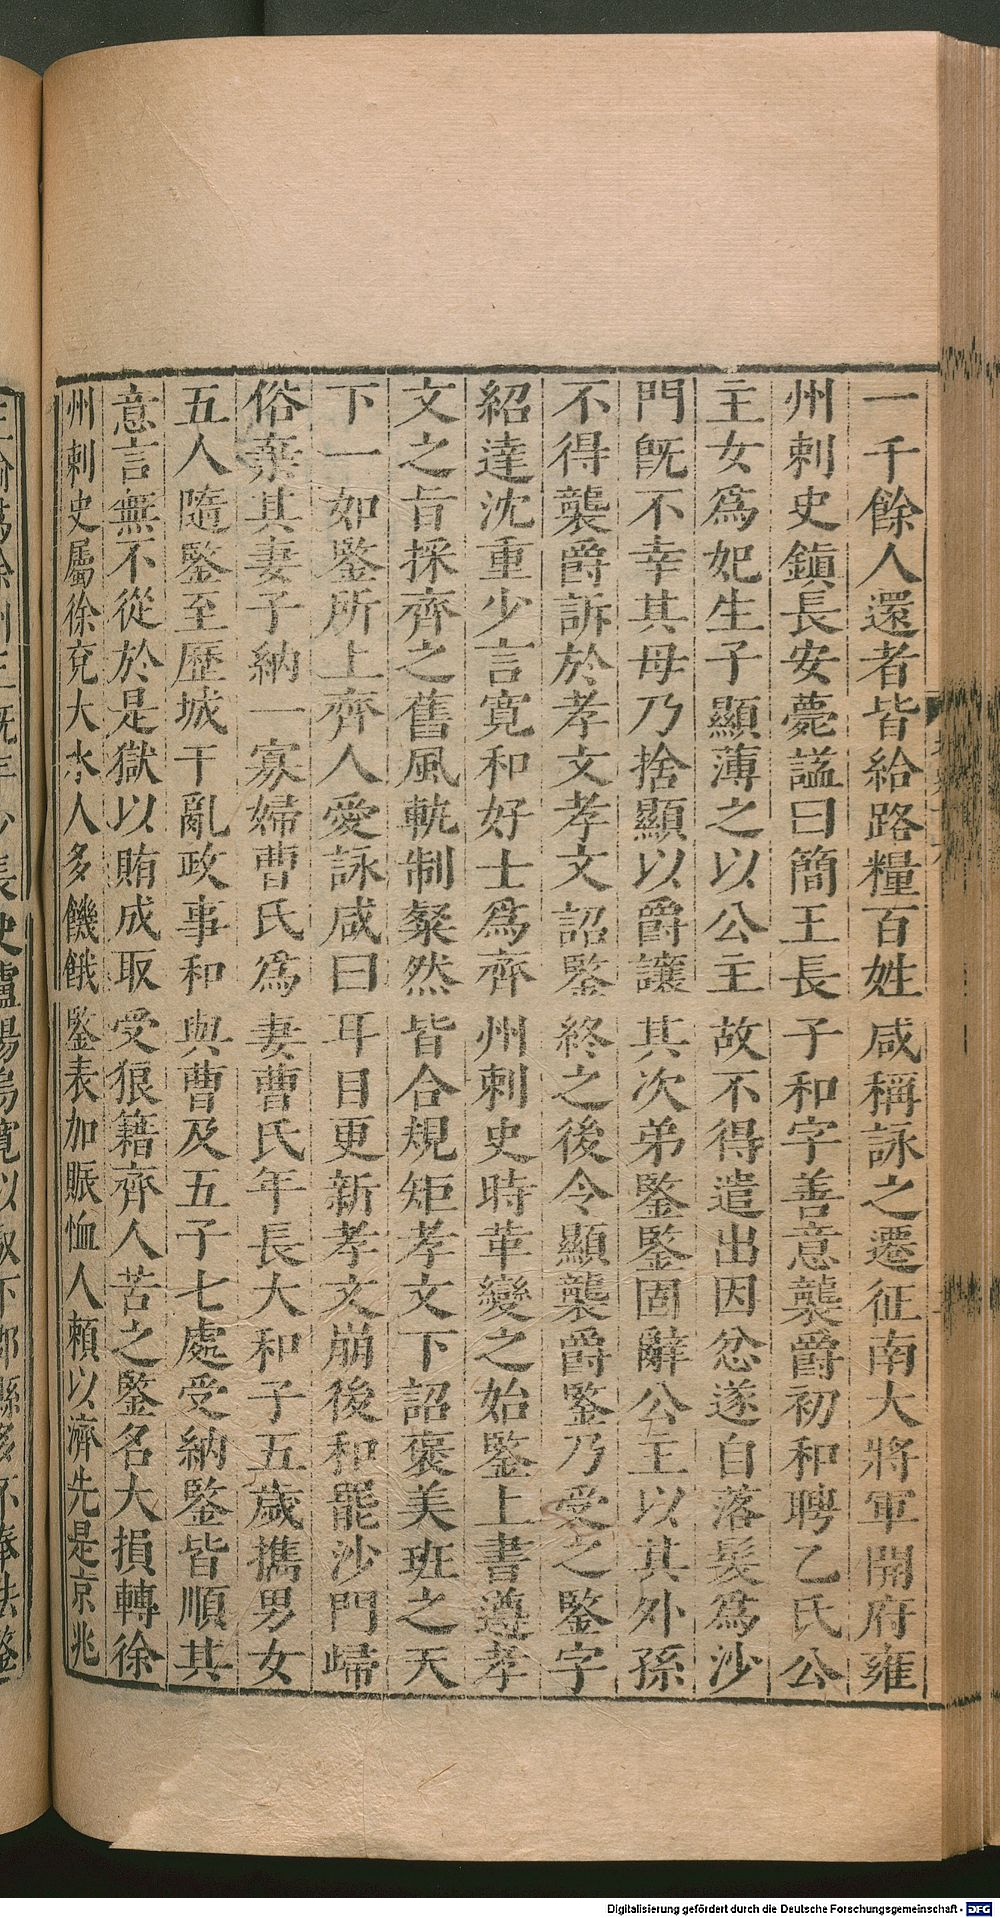 一千餘人還者皆給路糧百姓咸稱詠之遷征南大將軍開府雍
州刺史鎮長安薨諡曰簡王長子和字善意襲爵初和聘乙氏公
主女爲妃生子顯薄之以公主故不得遣出因忿遂自落髮爲沙
門既不幸其母乃捨顯以爵讓其次弟鑒鑒固辭公主以其外孫
不得襲爵訴於孝文孝文詔鑒終之後令顯襲爵鑒乃受之鑒字
紹達沈重少言寬和好士爲齊州刺史時革變之始鑒上書遵孝
文之旨採齊之舊風軌制粲然皆合規矩孝文下詔褒美班之天
下一如鑒所上齊人愛詠咸曰耳目更新孝文崩後和罷沙門歸
俗棄其妻子納一寡婦曹氏爲妻曹氏年長大和子五歲攜男女
五人隨鑒至歷城干亂政事和與曹及五子七處受納鑒皆順其
意言無不從於是獄以賄成取受狼籍齊人苦之鑒名大損轉徐
州刺史屬徐兗大水人多饑餓鑒表加賑恤人賴以濟先是京兆
Digitalisierung gefördert durch die Deutsche Forschungsgemeinschaft - DFG